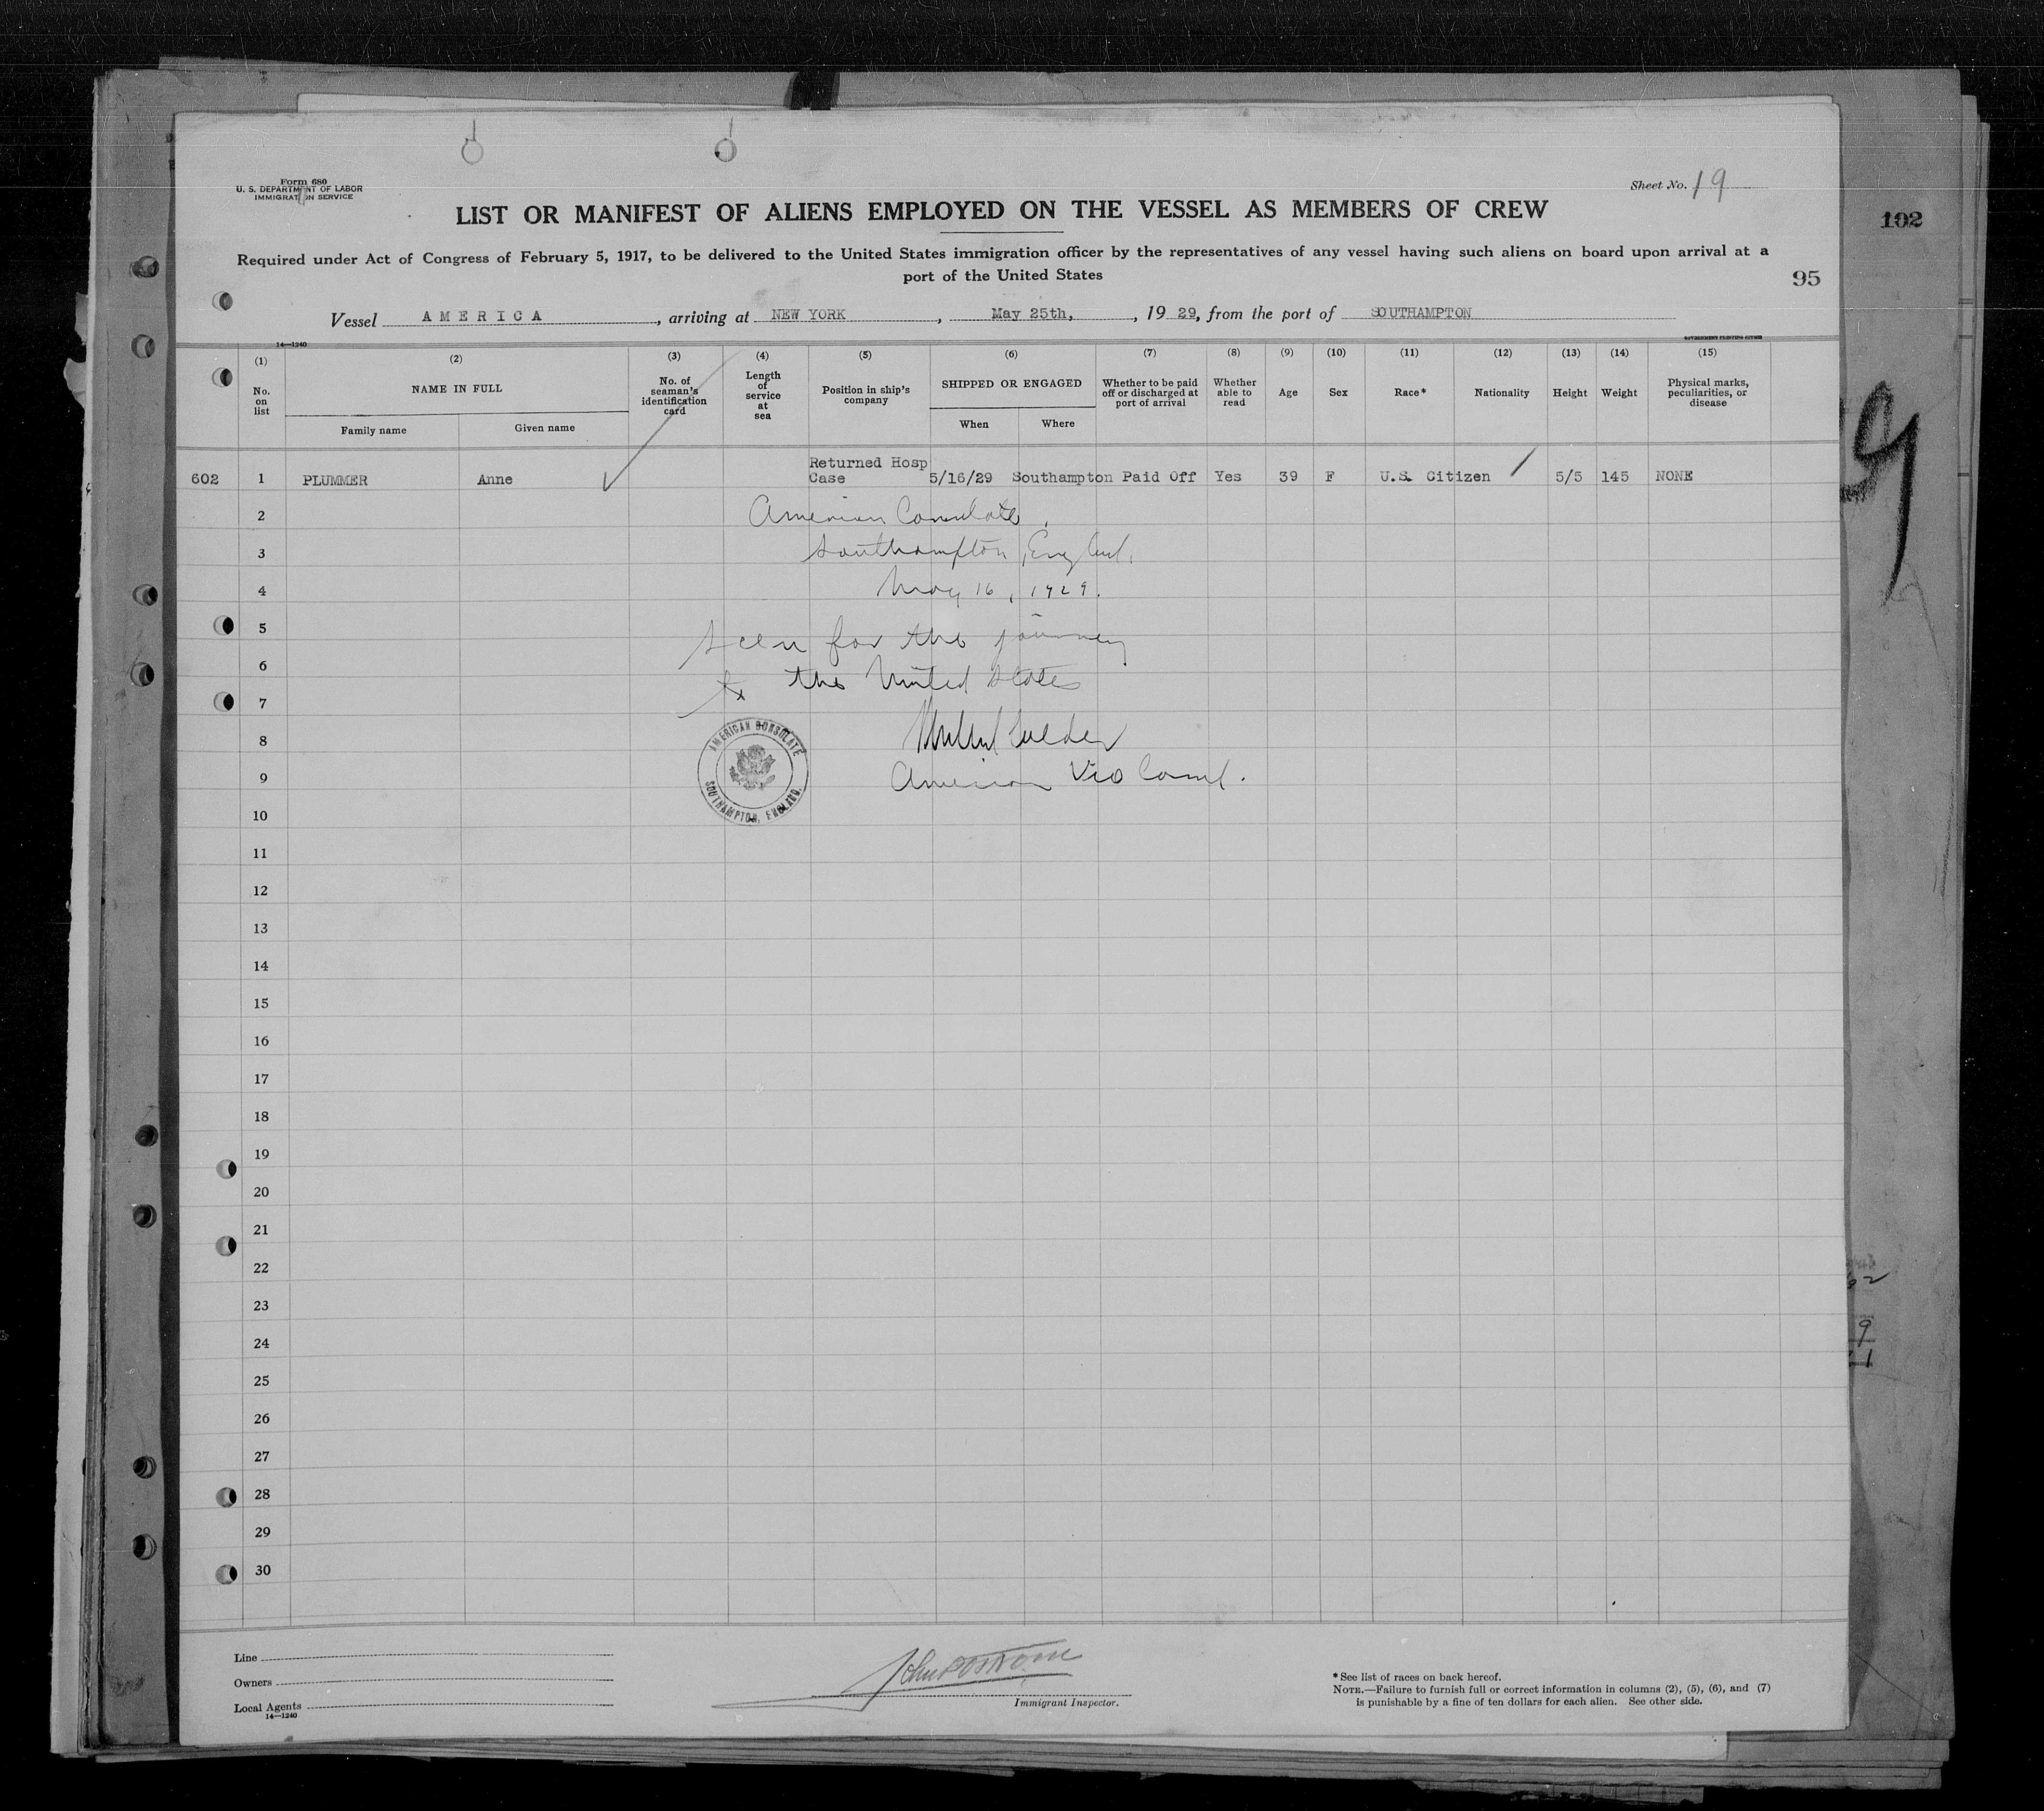 Form 680
U. S. DEPARTMENT OF LABOR
IMMIGRATION SERVICE
Sheet No. 19
LIST OR MANIFEST OF ALIENS EMPLOYED ON THE VESSEL AS MEMBERS OF CREW
102
Required under Act of Congress of February 5, 1917, to be delivered to the United States immigration officer by the representatives of any vessel having such aliens on board upon arrival at a
port of the United States
95
Vessel AMERICA, arriving at NEW YORK, May 25th, 1929, from the port of SOUTHAMPTON
14—1240
GOVERNMENT PRINTING OFFICE
(1) (2) (3) (4) (5) (6) (7) (8) (9) (10) (11) (12) (13) (14) (15)
No. on list
NAME IN FULL
Family name
Given name
No. of seaman's identification card
Length of service at sea
Position in ship's company
SHIPPED OR ENGAGED
When
Where
Whether to be paid off or discharged at port of arrival
Whether able to read
Age
Sex
Race*
Nationality
Height
Weight
Physical marks, peculiarities, or disease
602 1 PLUMMER Anne Returned Hosp Case 5/16/29 Southampton Paid Off Yes 39 F U.S. Citizen 5/5 145 NONE
2 American Consulate,
3 Southampton, England,
4 May 16, 1929.
5 Seen for the journey
6 to the United States
7
8
9 American Vice Consul.
AMERICAN CONSULATE
SOUTHAMPTON, ENGLAND.
10
11
12
13
14
15
16
17
18
19
20
21
22
23
24
25
26
27
28
29
30
Line
Owners
Local Agents
14—1240
Immigrant Inspector.
*See list of races on back hereof.
NOTE.—Failure to furnish full or correct information in columns (2), (5), (6), and (7)
is punishable by a fine of ten dollars for each alien. See other side.